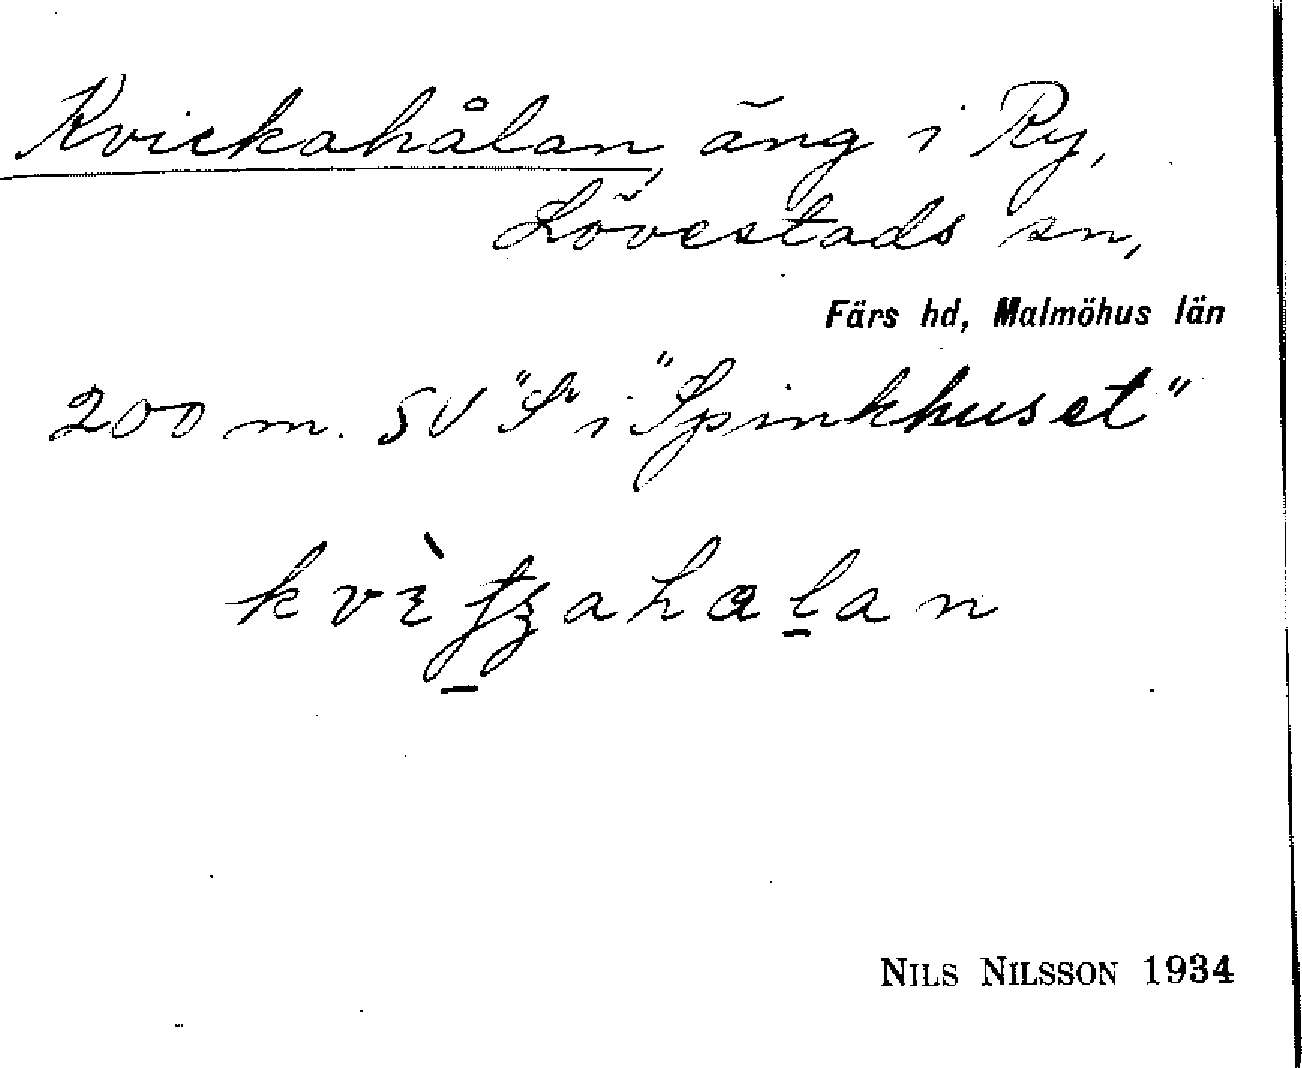 Kvickahålan, äng i Ry,
Lövestads sn,
Färs hd, Malmöhus län
200 m. SV "S" i "Spinkhuset"
NILS NILSSON 1934